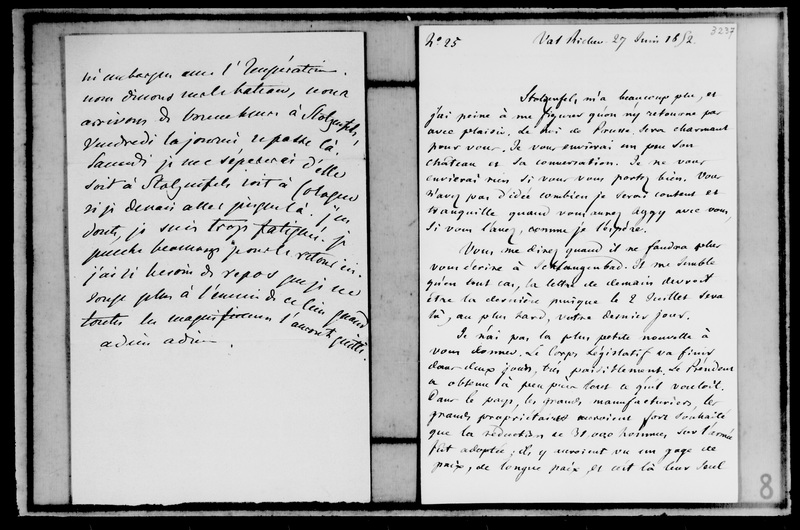 m'embarquer avec l'Impératrice.
nous dînons sur le bateau, nous
arrivons de bonne heure à Stolzenfels,
Vendredi la journée repasse là
Samedi je me séparerai d'elle
soit à Stolzenfels soit à Cologne
si je devais aller jusque là. J'en
doute, je suis trop fatiguée. Je
penche beaucoup pour le retour ici.
j'ai si besoin de repos que je ne
songe plus à l'ennui de ce lieu quand
toutes les magnificences l'auront quitté.
adieu adieu.
3237
N° 25 Val Richer 27 Juin 1852
Stolzenfels m'a beaucoup plu, et
j'ai peine à me figurer qu'on n'y retourne pas
avec plaisir. Le Roi de Prusse sera charmant
pour vous. Je vous envierai un peu son
château et sa conversation. Je ne vous
envierai rien si vous vous portez bien. Vous
n'avez pas d'idée combien je serai content et
tranquille quand vous aurez Aggy avec vous,
si vous l'avez, comme je l'espère.
Vous me direz quand il ne faudra plus
vous écrire à Schlangenbad. Il me semble
qu'en tout cas, la lettre de demain devroit
être la dernière puisque le 2 Juillet sera
là, au plus tard, votre dernier jour.
Je n'ai pas la plus petite nouvelle à
vous donner. Le Corps législatif va finir
dans deux jours, très paisiblement. Le Président
a obtenu à peu près tout ce qu'il vouloit.
Dans le pays, les grands manufacturiers, les
grands propriétaires auroient fort souhaité
que la réduction de 31 000 hommes sur l'armée
fût adoptée ; ils y auroient vu un gage de
paix, de longue paix, et c'est là leur seul
8